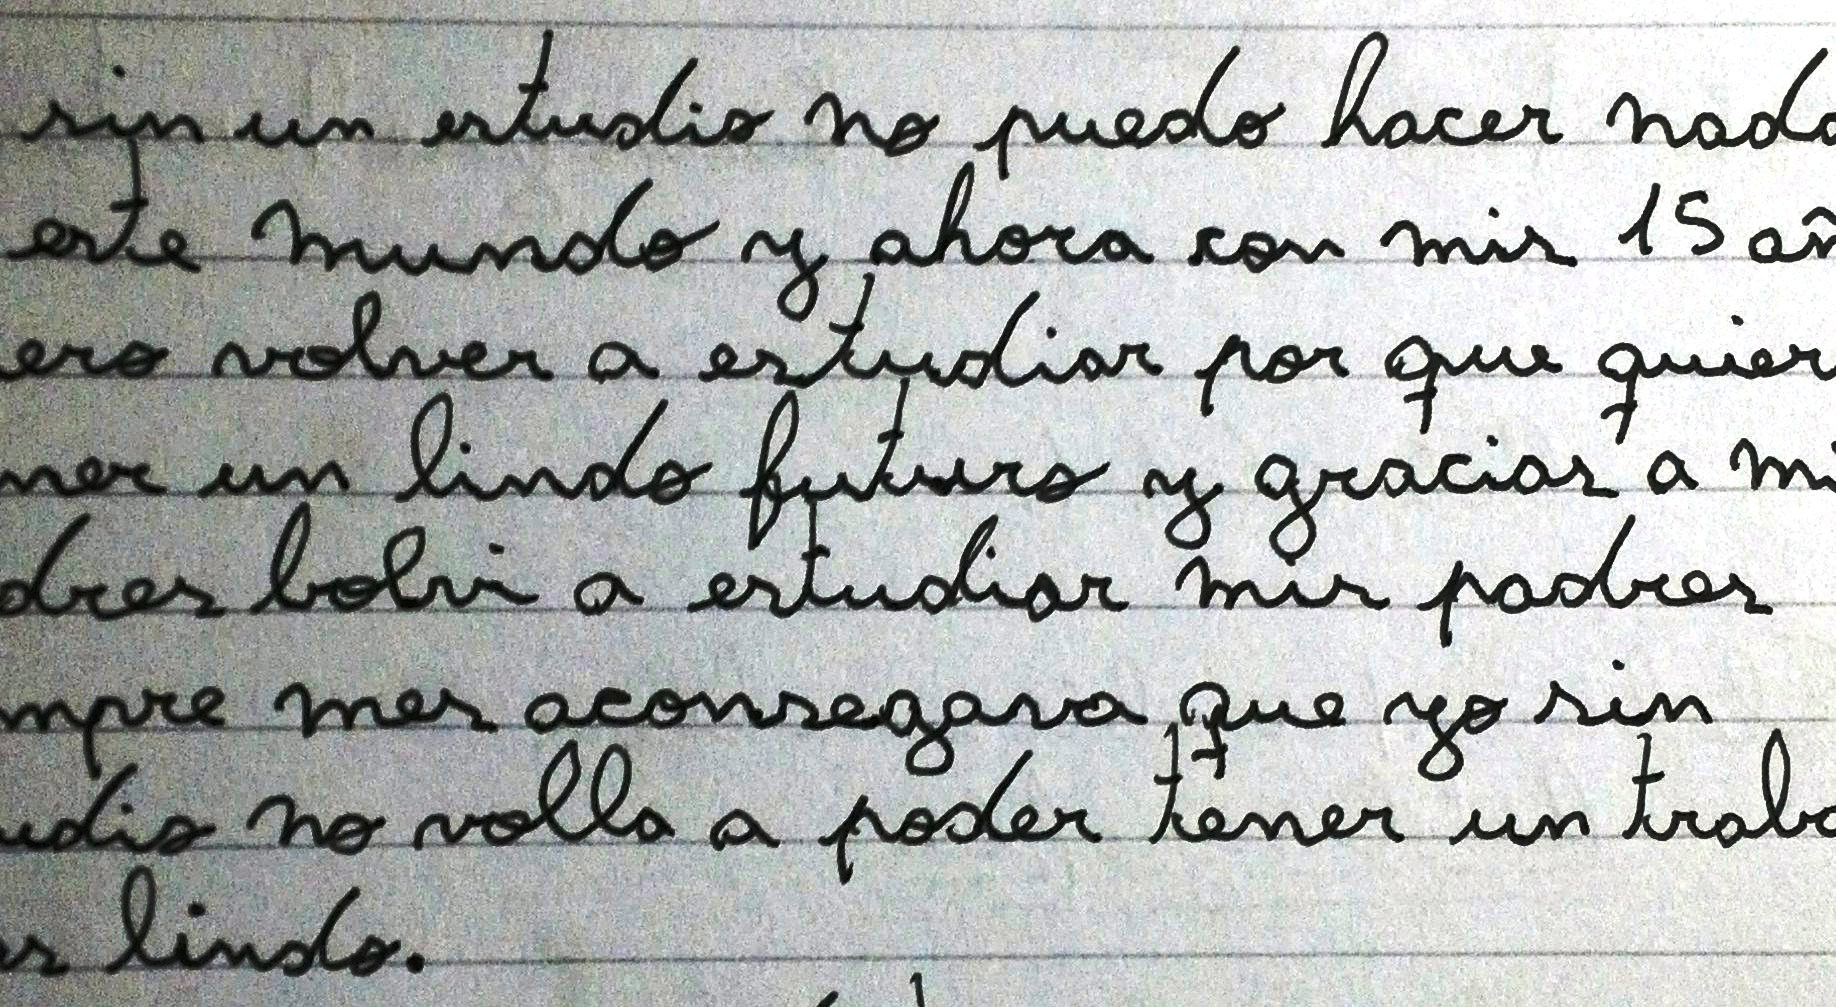 sin un estudio no puedo hacer nada
este mundo y ahora con mis 15 añ
ero volver a estudiar por que quier
ner un lindo futuro y gracias a mi
dres bolvi a estudiar mis padres
mpre mes aconsegava que yo sin
udio no volla a poder tener un traba
as lindo.